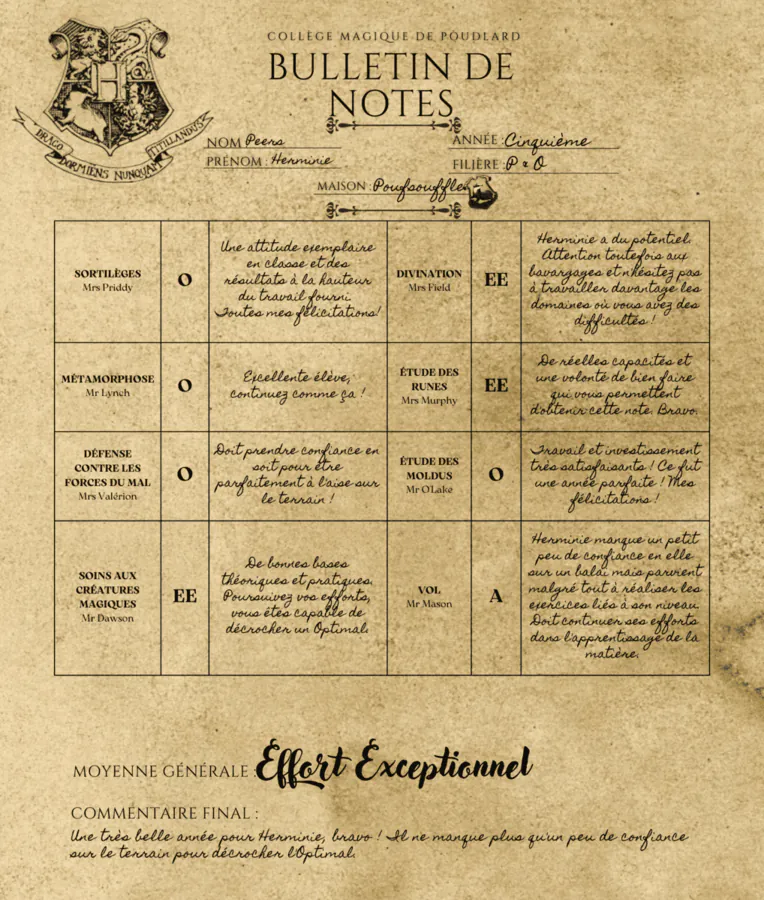 COLLÈGE MAGIQUE DE POUDLARD
BULLETIN DE
NOTES
DRACO DORMIENS NUNQUAM TITILLANDUS
NOM Peers
ANNÉE : Cinquième
PRÉNOM : Herminie
FILIÈRE : P & O
MAISON : Poufsouffle
SORTILÈGES
Mrs Priddy
O
Une attitude exemplaire
en classe et des
résultats à la hauteur
du travail fourni
Toutes mes félicitations!
DIVINATION
Mrs Field
EE
Herminie a du potentiel.
Attention toutefois aux
bavargages et n'hésitez pas
à travailler davantage les
domaines où vous avez des
difficultés !
MÉTAMORPHOSE
Mr Lynch
O
Excellente élève,
continuez comme ça !
ÉTUDE DES
RUNES
Mrs Murphy
EE
De réelles capacités et
une volonté de bien faire
qui vous permettent
d'obtenir cette note. Bravo.
DÉFENSE
CONTRE LES
FORCES DU MAL
Mrs Valérion
O
Doit prendre confiance en
soit pour être
parfaitement à l'aise sur
le terrain !
ÉTUDE DES
MOLDUS
Mr O'Lake
O
Travail et investissement
très satisfaisants ! Ce fut
une année parfaite ! Mes
félicitations !
SOINS AUX
CRÉATURES
MAGIQUES
Mr Dawson
EE
De bonnes bases
théoriques et pratiques.
Poursuivez vos efforts,
vous êtes capable de
décrocher un Optimal.
VOL
Mr Mason
A
Herminie manque un petit
peu de confiance en elle
sur un balai mais parvient
malgré tout à réaliser les
exercices liés à son niveau.
Doit continuer ses efforts
dans l'apprentissage de la
matière.
MOYENNE GÉNÉRALE : Effort Exceptionnel
COMMENTAIRE FINAL :
Une très belle année pour Herminie, bravo ! Il ne manque plus qu'un peu de confiance
sur le terrain pour décrocher l'Optimal.